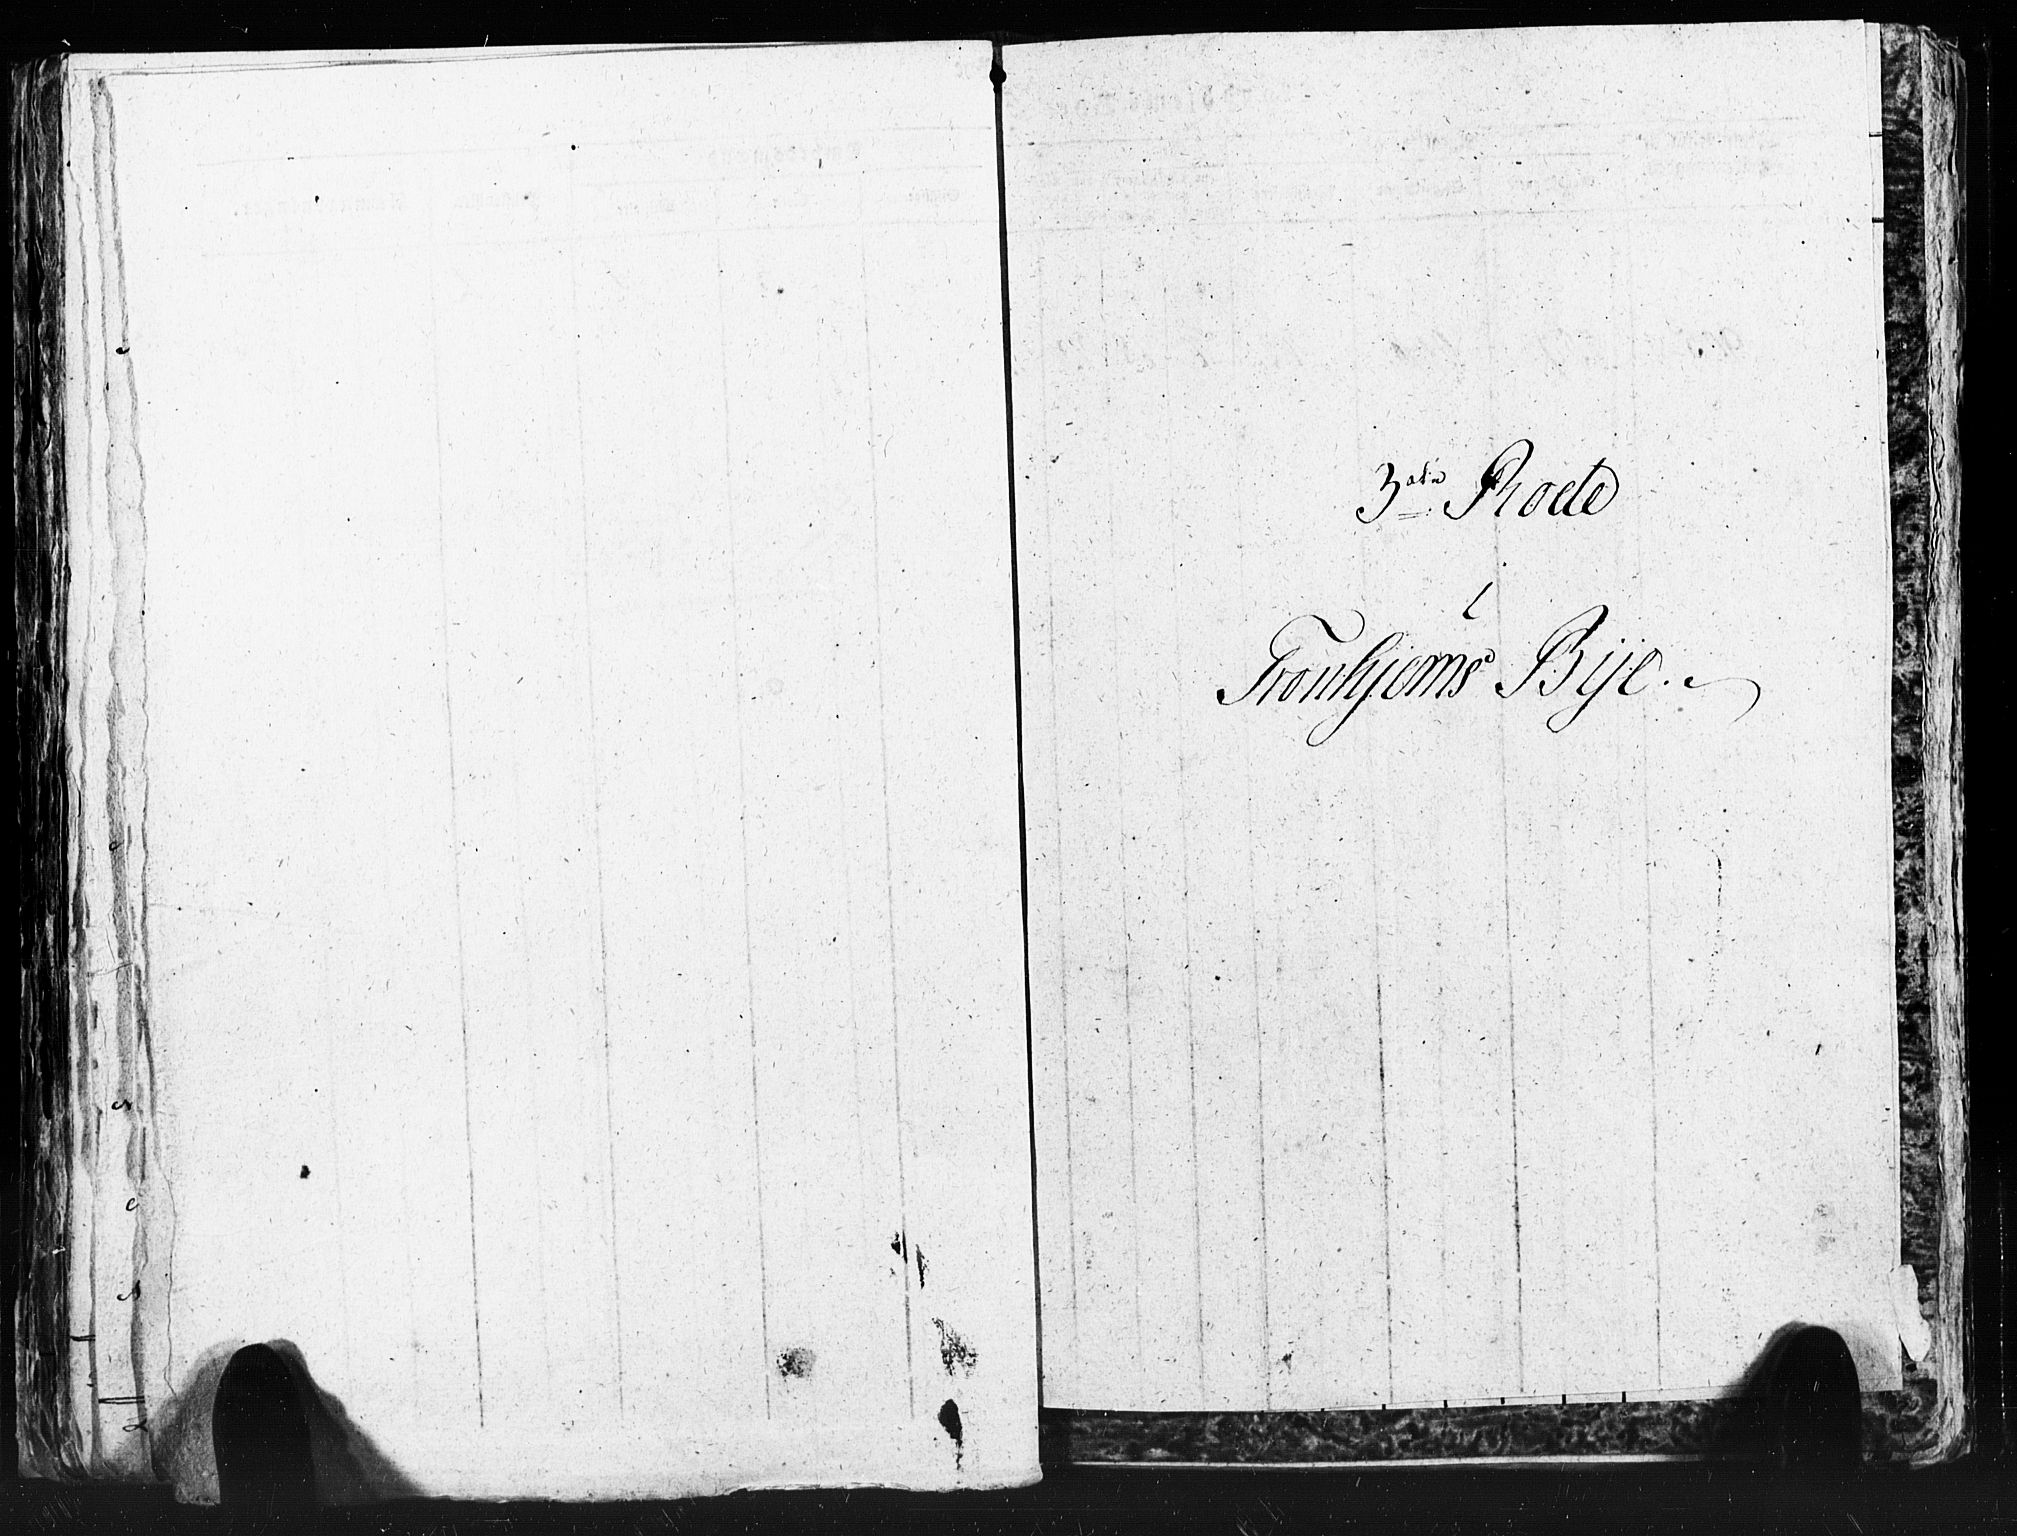 3die Roede
i
Tronhjems Bÿe.